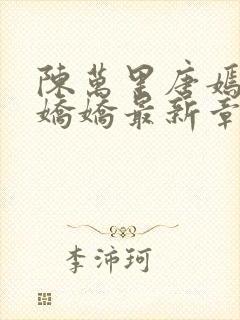 陳萬里唐嫣
嬌嬌最新章
李沛珂